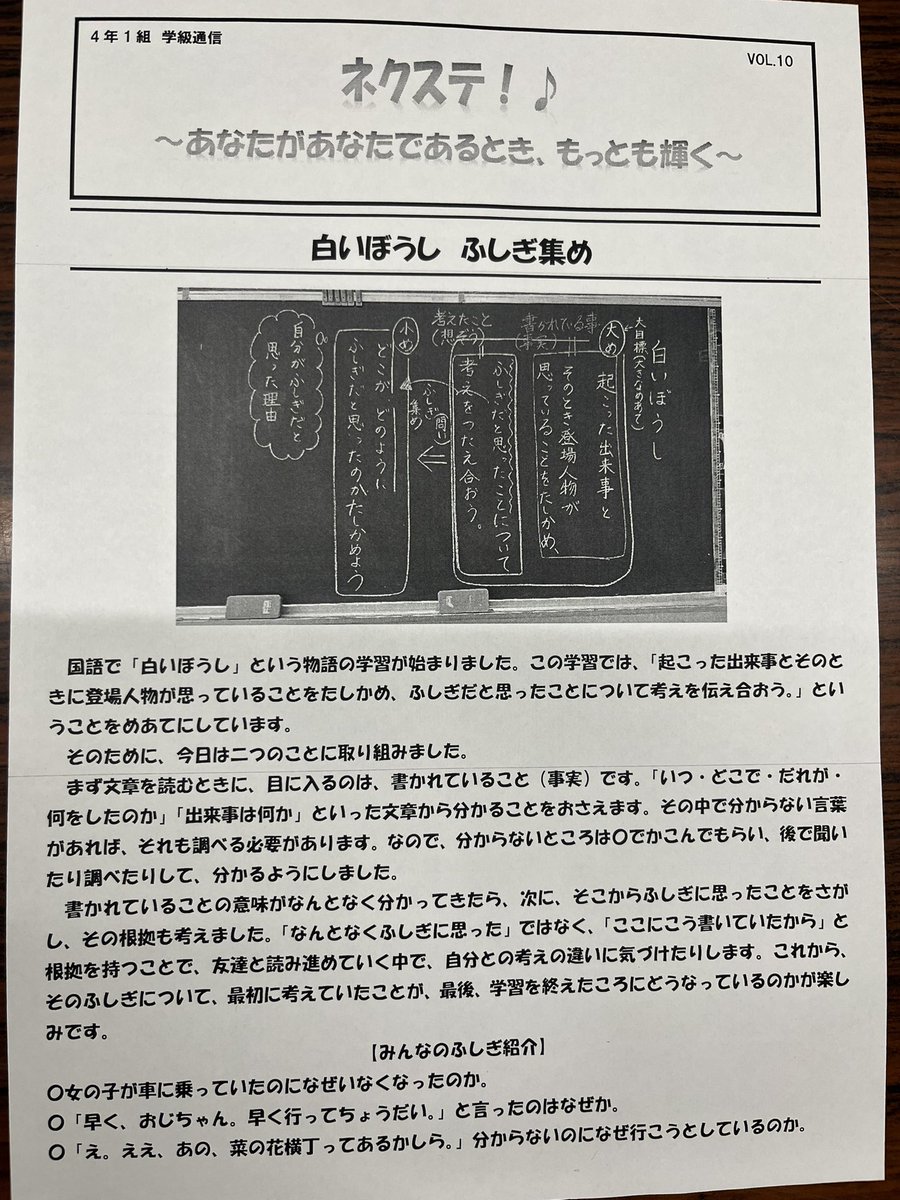 4年1組 学級通信
VOL.10
ネクステ！♪
～あなたがあなたであるとき、もっとも輝く～
白いぼうし ふしぎ集め
白いぼうし
大目標(大きなめあて)
大め
起こった出来事と
そのとき登場人物が
思っていることをたしかめ、
ふしぎだと思ったことについて
考えをつたえ合おう。
書かれている事
(事実)
考えたこと
(想ぞう)
ふしぎ(問い)
集め
小め
どこが、どのように
ふしぎだと思ったのかたしかめよう
自分がふしぎだと
思った理由
国語で「白いぼうし」という物語の学習が始まりました。この学習では、「起こった出来事とそのと
きに登場人物が思っていることをたしかめ、ふしぎだと思ったことについて考えを伝え合おう。」とい
うことをめあてにしています。
そのために、今日は二つのことに取り組みました。
まず文章を読むときに、目に入るのは、書かれていること（事実）です。「いつ・どこで・だれが・
何をしたのか」「出来事は何か」といった文章から分かることをおさえます。その中で分からない言葉
があれば、それも調べる必要があります。なので、分からないところは〇でかこんでもらい、後で聞い
たり調べたりして、分かるようにしました。
書かれていることの意味がなんとなく分かってきたら、次に、そこからふしぎに思ったことをさが
し、その根拠も考えました。「なんとなくふしぎに思った」ではなく、「ここにこう書いていたから」と
根拠を持つことで、友達と読み進めていく中で、自分との考えの違いに気づけたりします。これから、
そのふしぎについて、最初に考えていたことが、最後、学習を終えたころにどうなっているのかが楽し
みです。
【みんなのふしぎ紹介】
〇女の子が車に乗っていたのになぜいなくなったのか。
〇「早く、おじちゃん。早く行ってちょうだい。」と言ったのはなぜか。
〇「え。ええ、あの、菜の花横丁ってあるかしら。」分からないのになぜ行こうとしているのか。